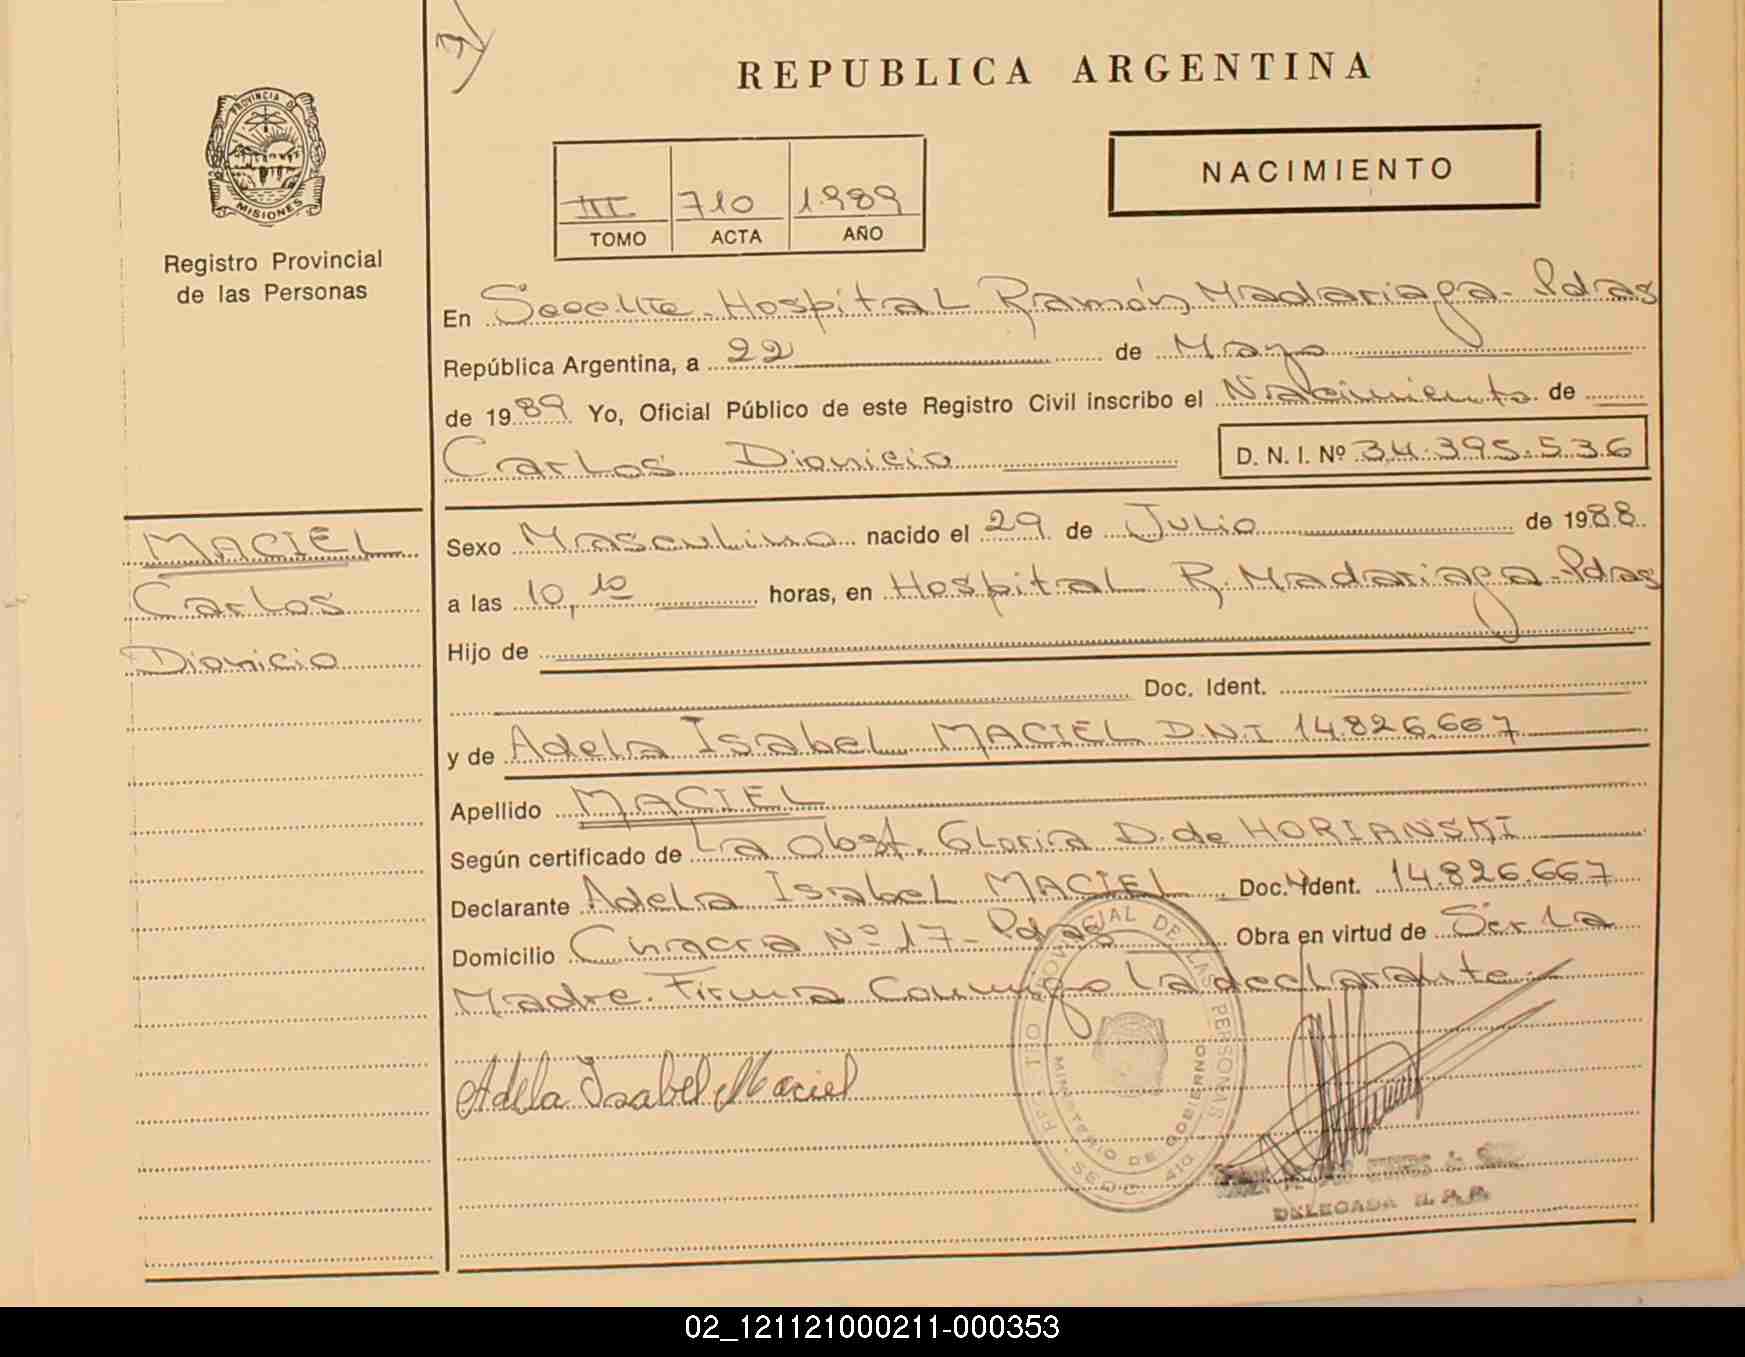 PROVINCIA DE
MISIONES
Registro Provincial
de las Personas
REPUBLICA ARGENTINA
NACIMIENTO
III 710 1989
TOMO ACTA AÑO
En Hospital Ramón Madariaga - Pdas
República Argentina, a 22 de Mayo
de 1989 Yo, Oficial Público de este Registro Civil inscribo el Nacimiento de
Carlos Dionicio D. N. I. Nº 34.395.536
MACIEL
Carlos
Dionicio
Sexo Masculino nacido el 29 de Julio de 1988
a las 10,10 horas, en Hospital R. Madariaga - Pdas
Hijo de
Doc. Ident.
y de Adela Isabel MACIEL D.N.I 14.826.667
Apellido MACIEL
Según certificado de La Obst. Gloria D. de HORIANSKI
Declarante Adela Isabel MACIEL Doc. Ident. 14.826.667
Domicilio Chacra Nº 17 - Pdas Obra en virtud de Ser la
Madre. Firma Conmigo la declarante
Adela Isabel Maciel
PROVINCIAL DE LAS PERSONAS
MINISTERIO DE GOBIERNO
DELEGADA
02_121121000211-000353